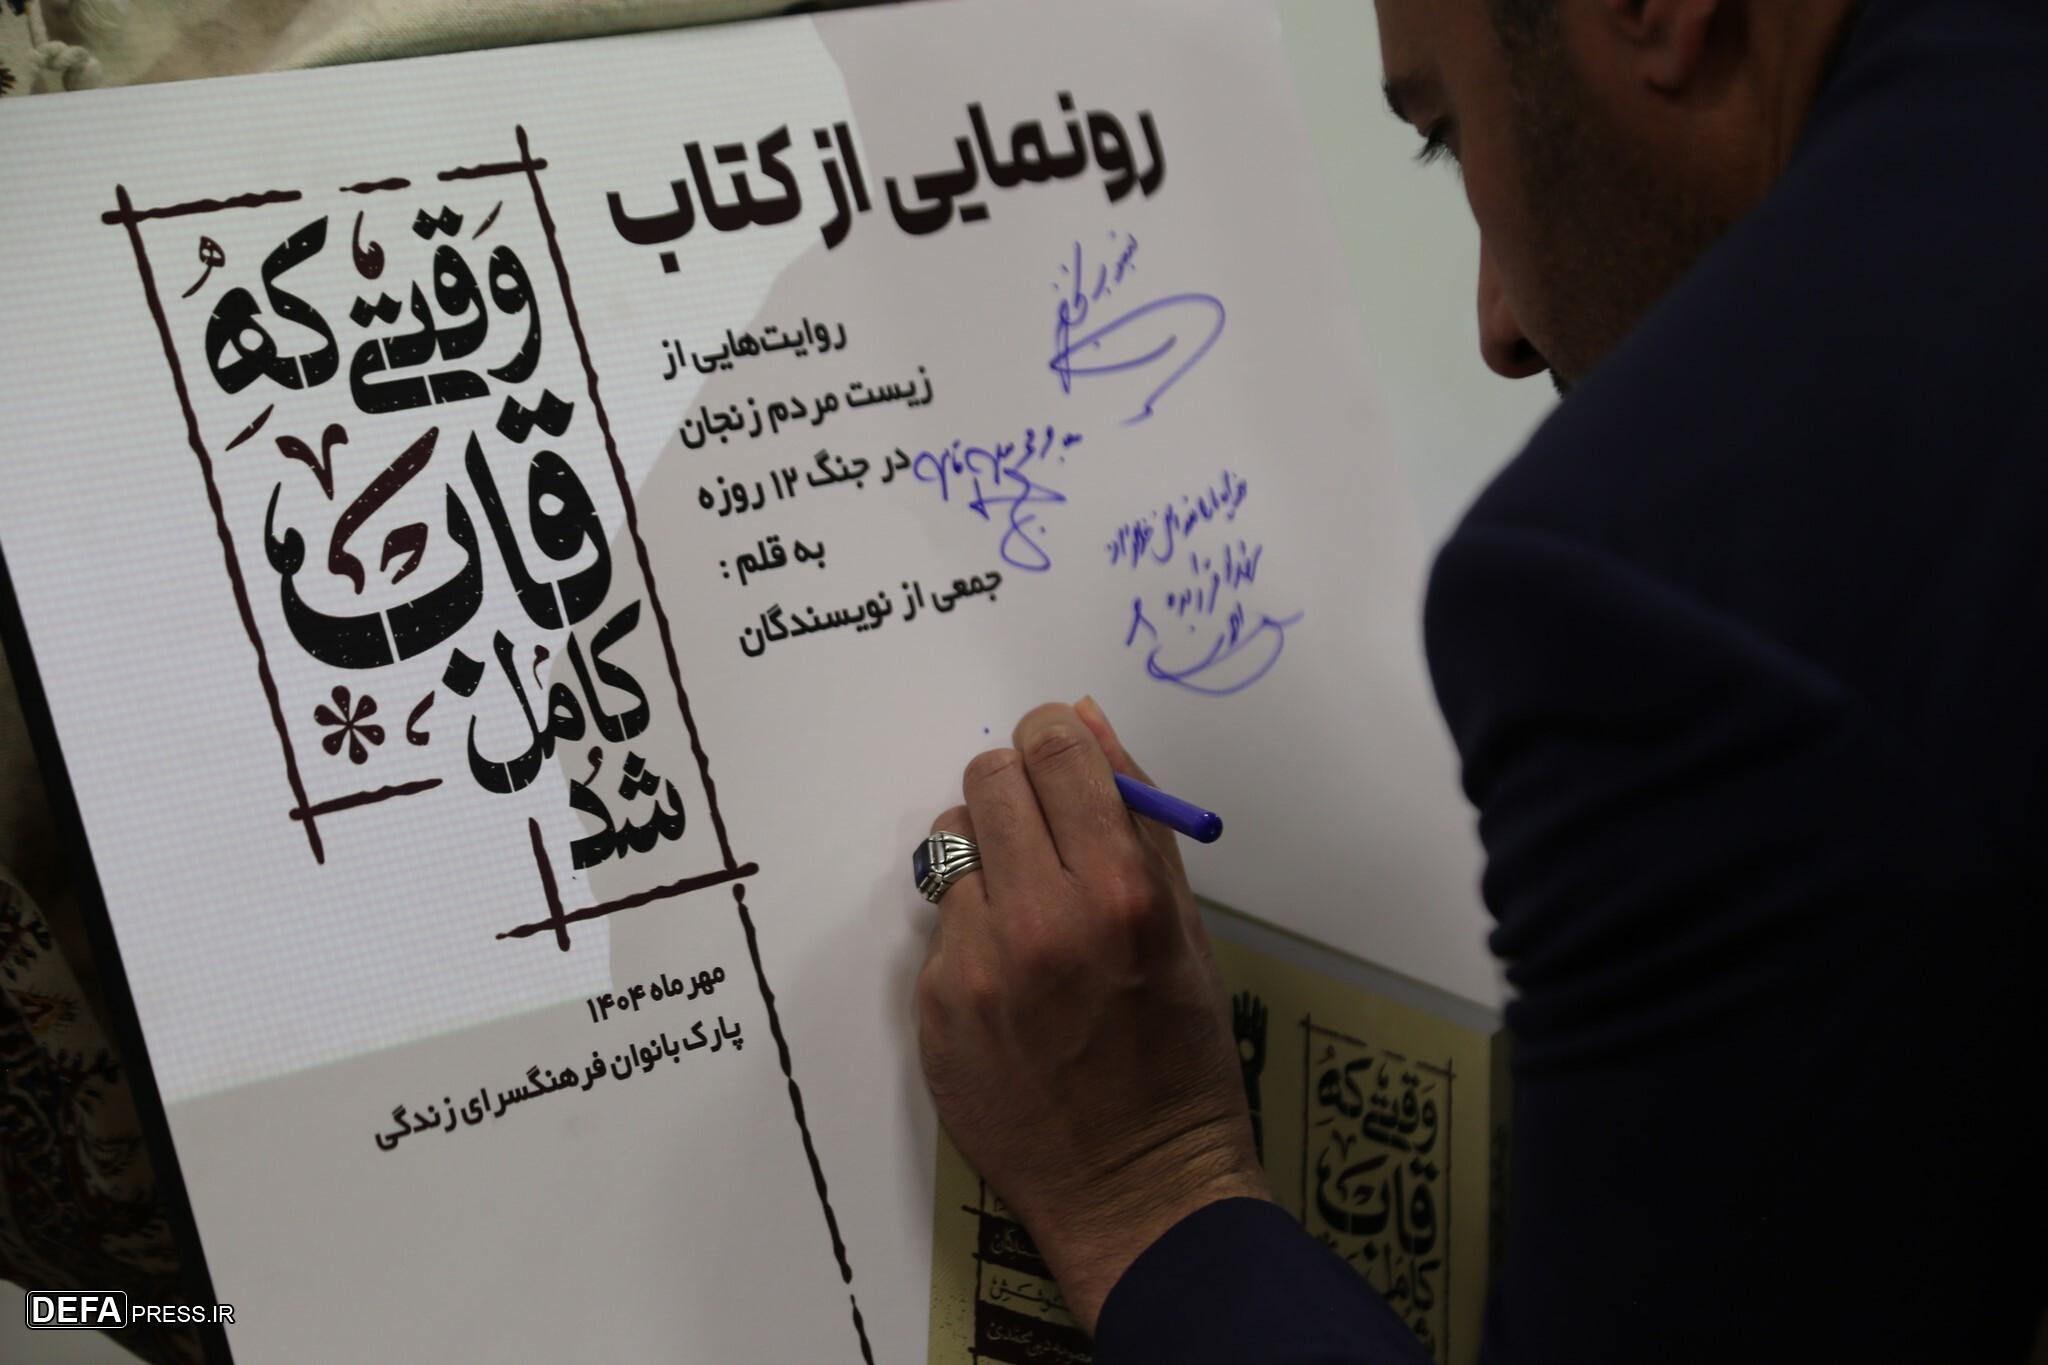 رونمایی از کتاب
وَقتی کهُ
قاب
کامل
شُد
روایت‌هایی از
زیست مردم زنجان
در جنگ ۱۲ روزه
به قلم :
جمعی از نویسندگان
مهر ماه ۱۴۰۴
پارک بانوان فرهنگسرای زندگی
وَقتی کهُ
قاب
کامل
DEFA PRESS.IR